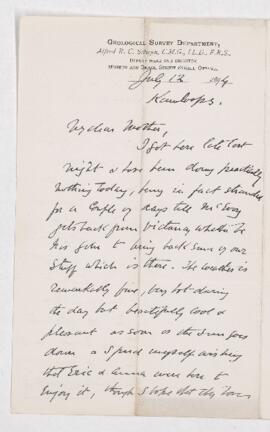 GEOLOGICAL SURVEY DEPARTMENT,
Alfred R. C. Selwyn, C.M.G., LL.D., F.R.S.,
July 12 1894
Kamloops.
My dear Mother,
I got here late last
night & have been doing practically
nothing today, being in fact stranded
for a couple of days till McEvoy
gets back from Victoria, whether he
has gone to bring back some of our
stuff which is there. The weather is
remarkably fine, very hot during
the day but beautifully cool &
pleasant as soon as the sun goes
down & I find myself wishing
that Eric & Anna were here to
enjoy it, though I hope that they have